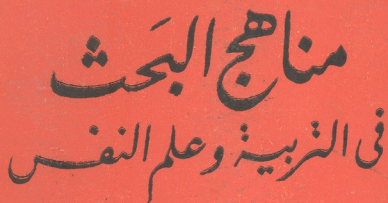 مناهج البَحث
فى التربية وعلم النفس